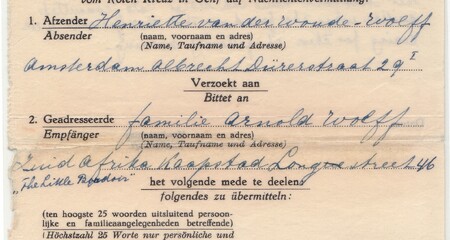 vom Roten Kreuz in Genf auf Nachrichtenvermittlung.
1. Afzender Henriette van der Woude-Wolff
Absender (naam, voornaam en adres)
(Name, Taufname und Adresse)
Amsterdam Albrecht Dürerstraat 29 I
Verzoekt aan
Bittet an
2. Geadresseerde familie Arnold Wolff
Empfänger (naam, voornaam en adres)
(Name, Taufname und Adresse)
Zuid Afrika Kaapstad Longstreet 46
"The Little
het volgende mede te deelen:
folgendes zu übermitteln:
(ten hoogste 25 woorden uitsluitend persoon-
lijke en familieaangelegenheden betreffende)
(Höchstzahl 25 Worte nur persönliche und